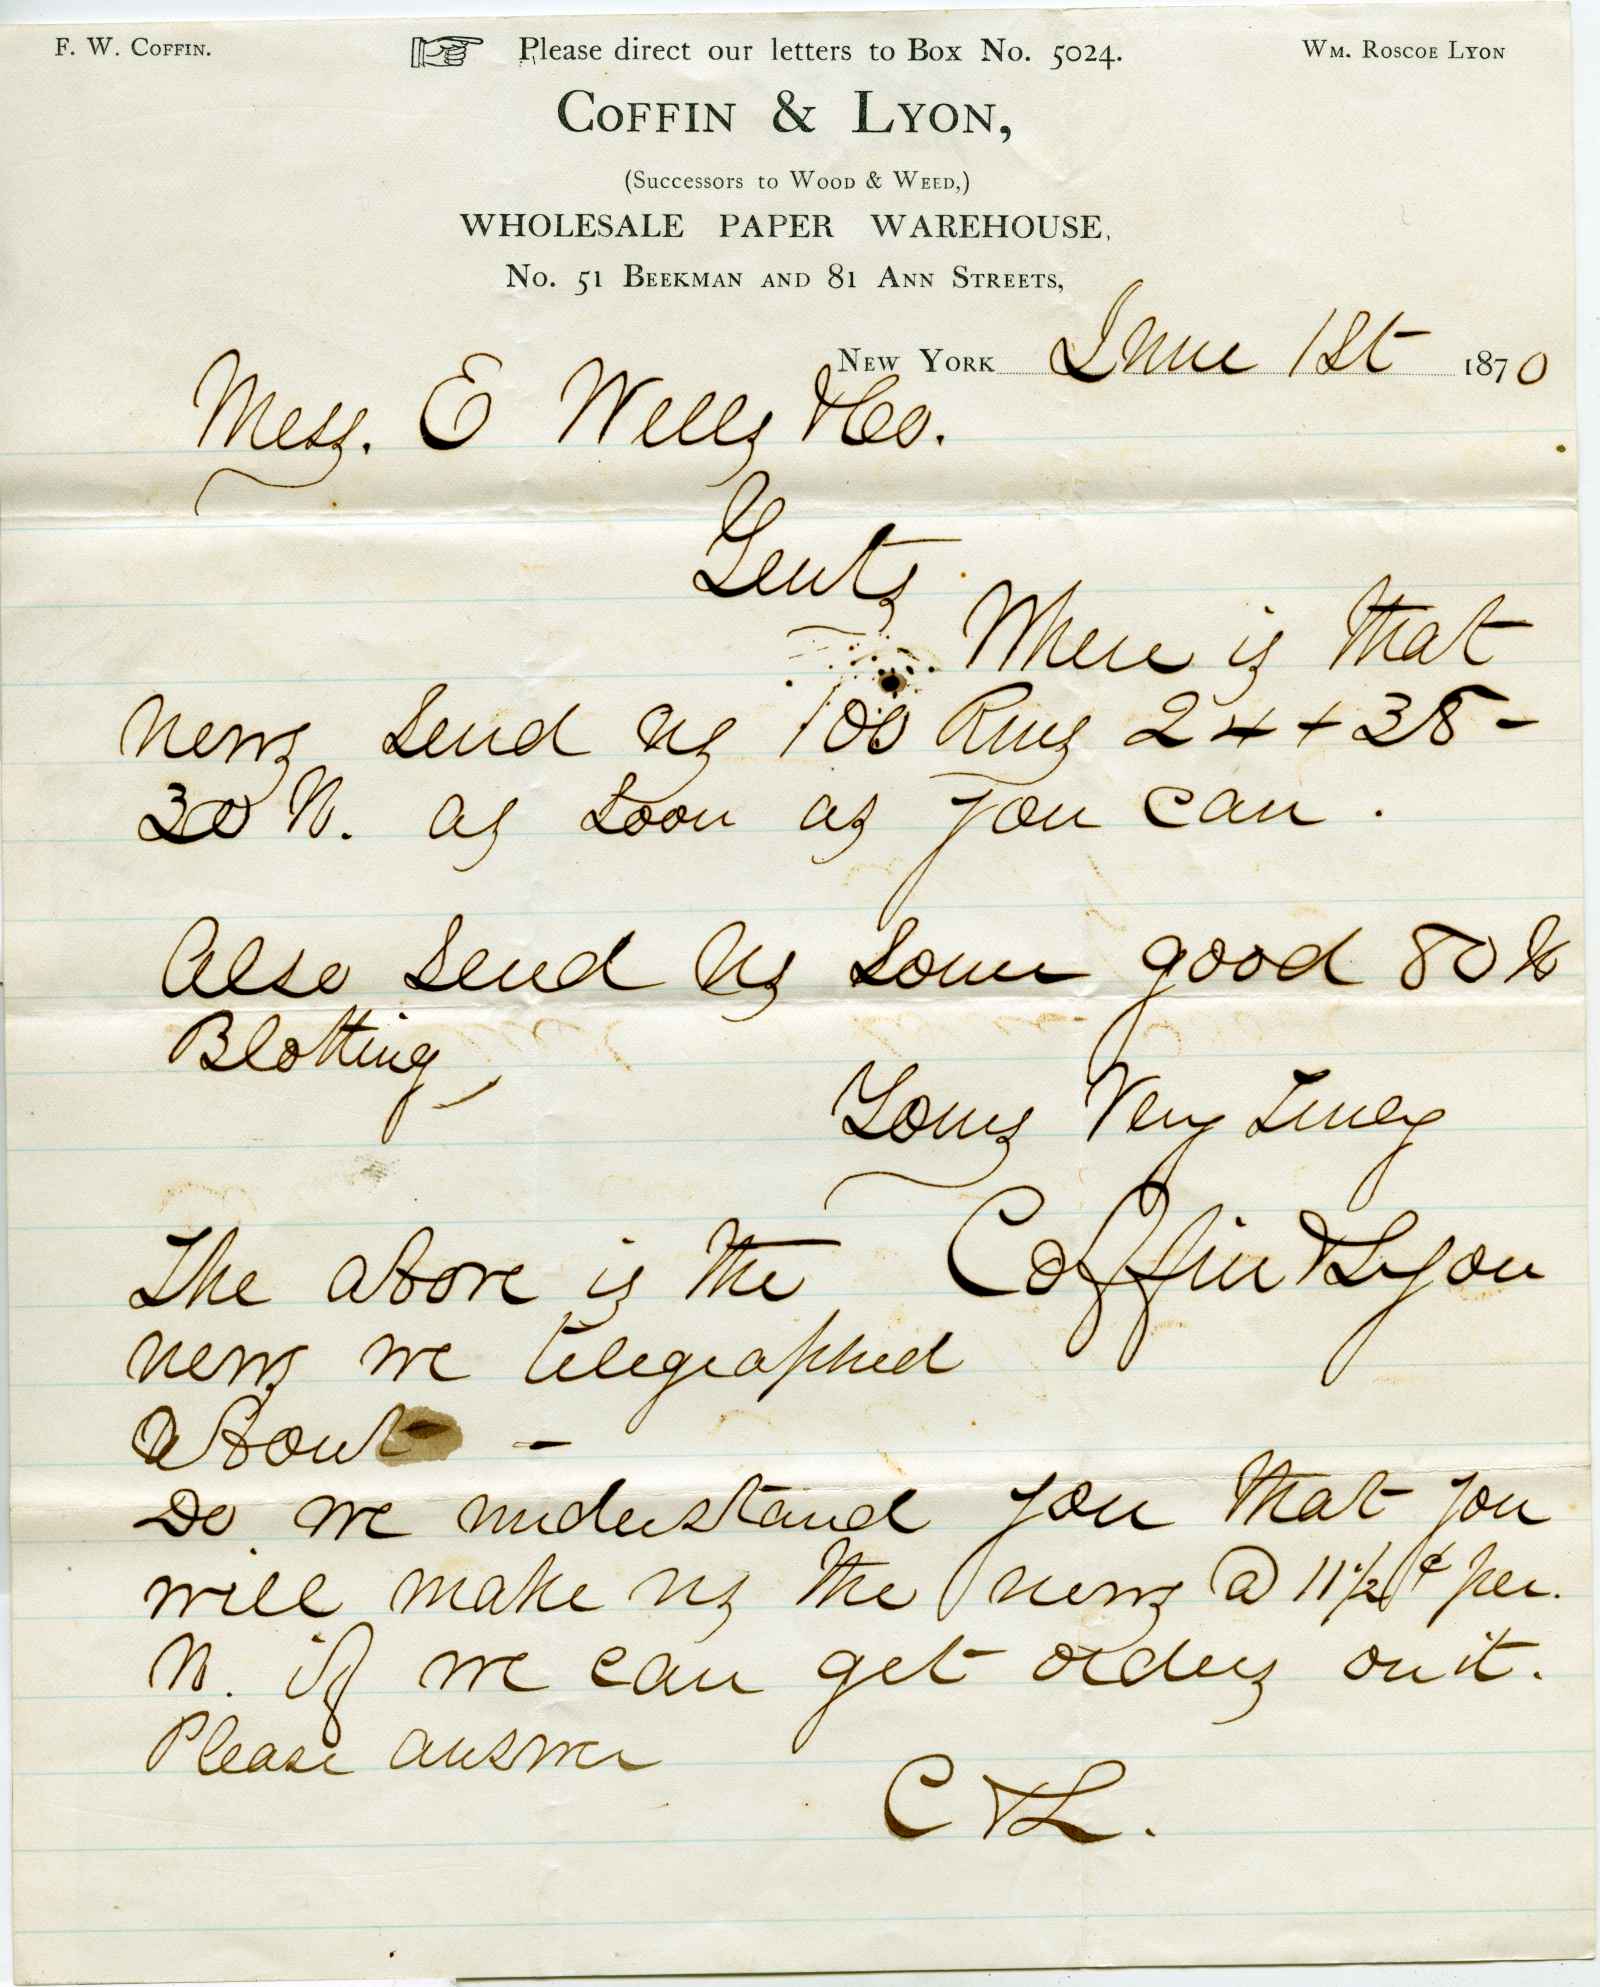 F. W. Coffin. Please direct our letters to Box No. 5024. Wm. Roscoe Lyon
Coffin & Lyon,
(Successors to Wood & Weed,)
WHOLESALE PAPER WAREHOUSE,
No. 51 Beekman and 81 Ann Streets,
New York June 1st 1870
Mess. E Wells & Co.
Gents
Where is that
news send us 100 Rms 24 + 38 -
30 as soon as you can.
Also send us some good 80
Blotting,
Yours Very Truly
Coffin & Lyon
The above is the
news we telegraphed
about -
Do we understand you that you
will make us the news @ 11½ ¢ per.
if we can get orders on it.
Please answer
C & L.